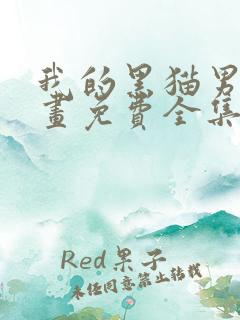 我的黑猫男
畫免費全集
Red果子
未经同意禁止转载